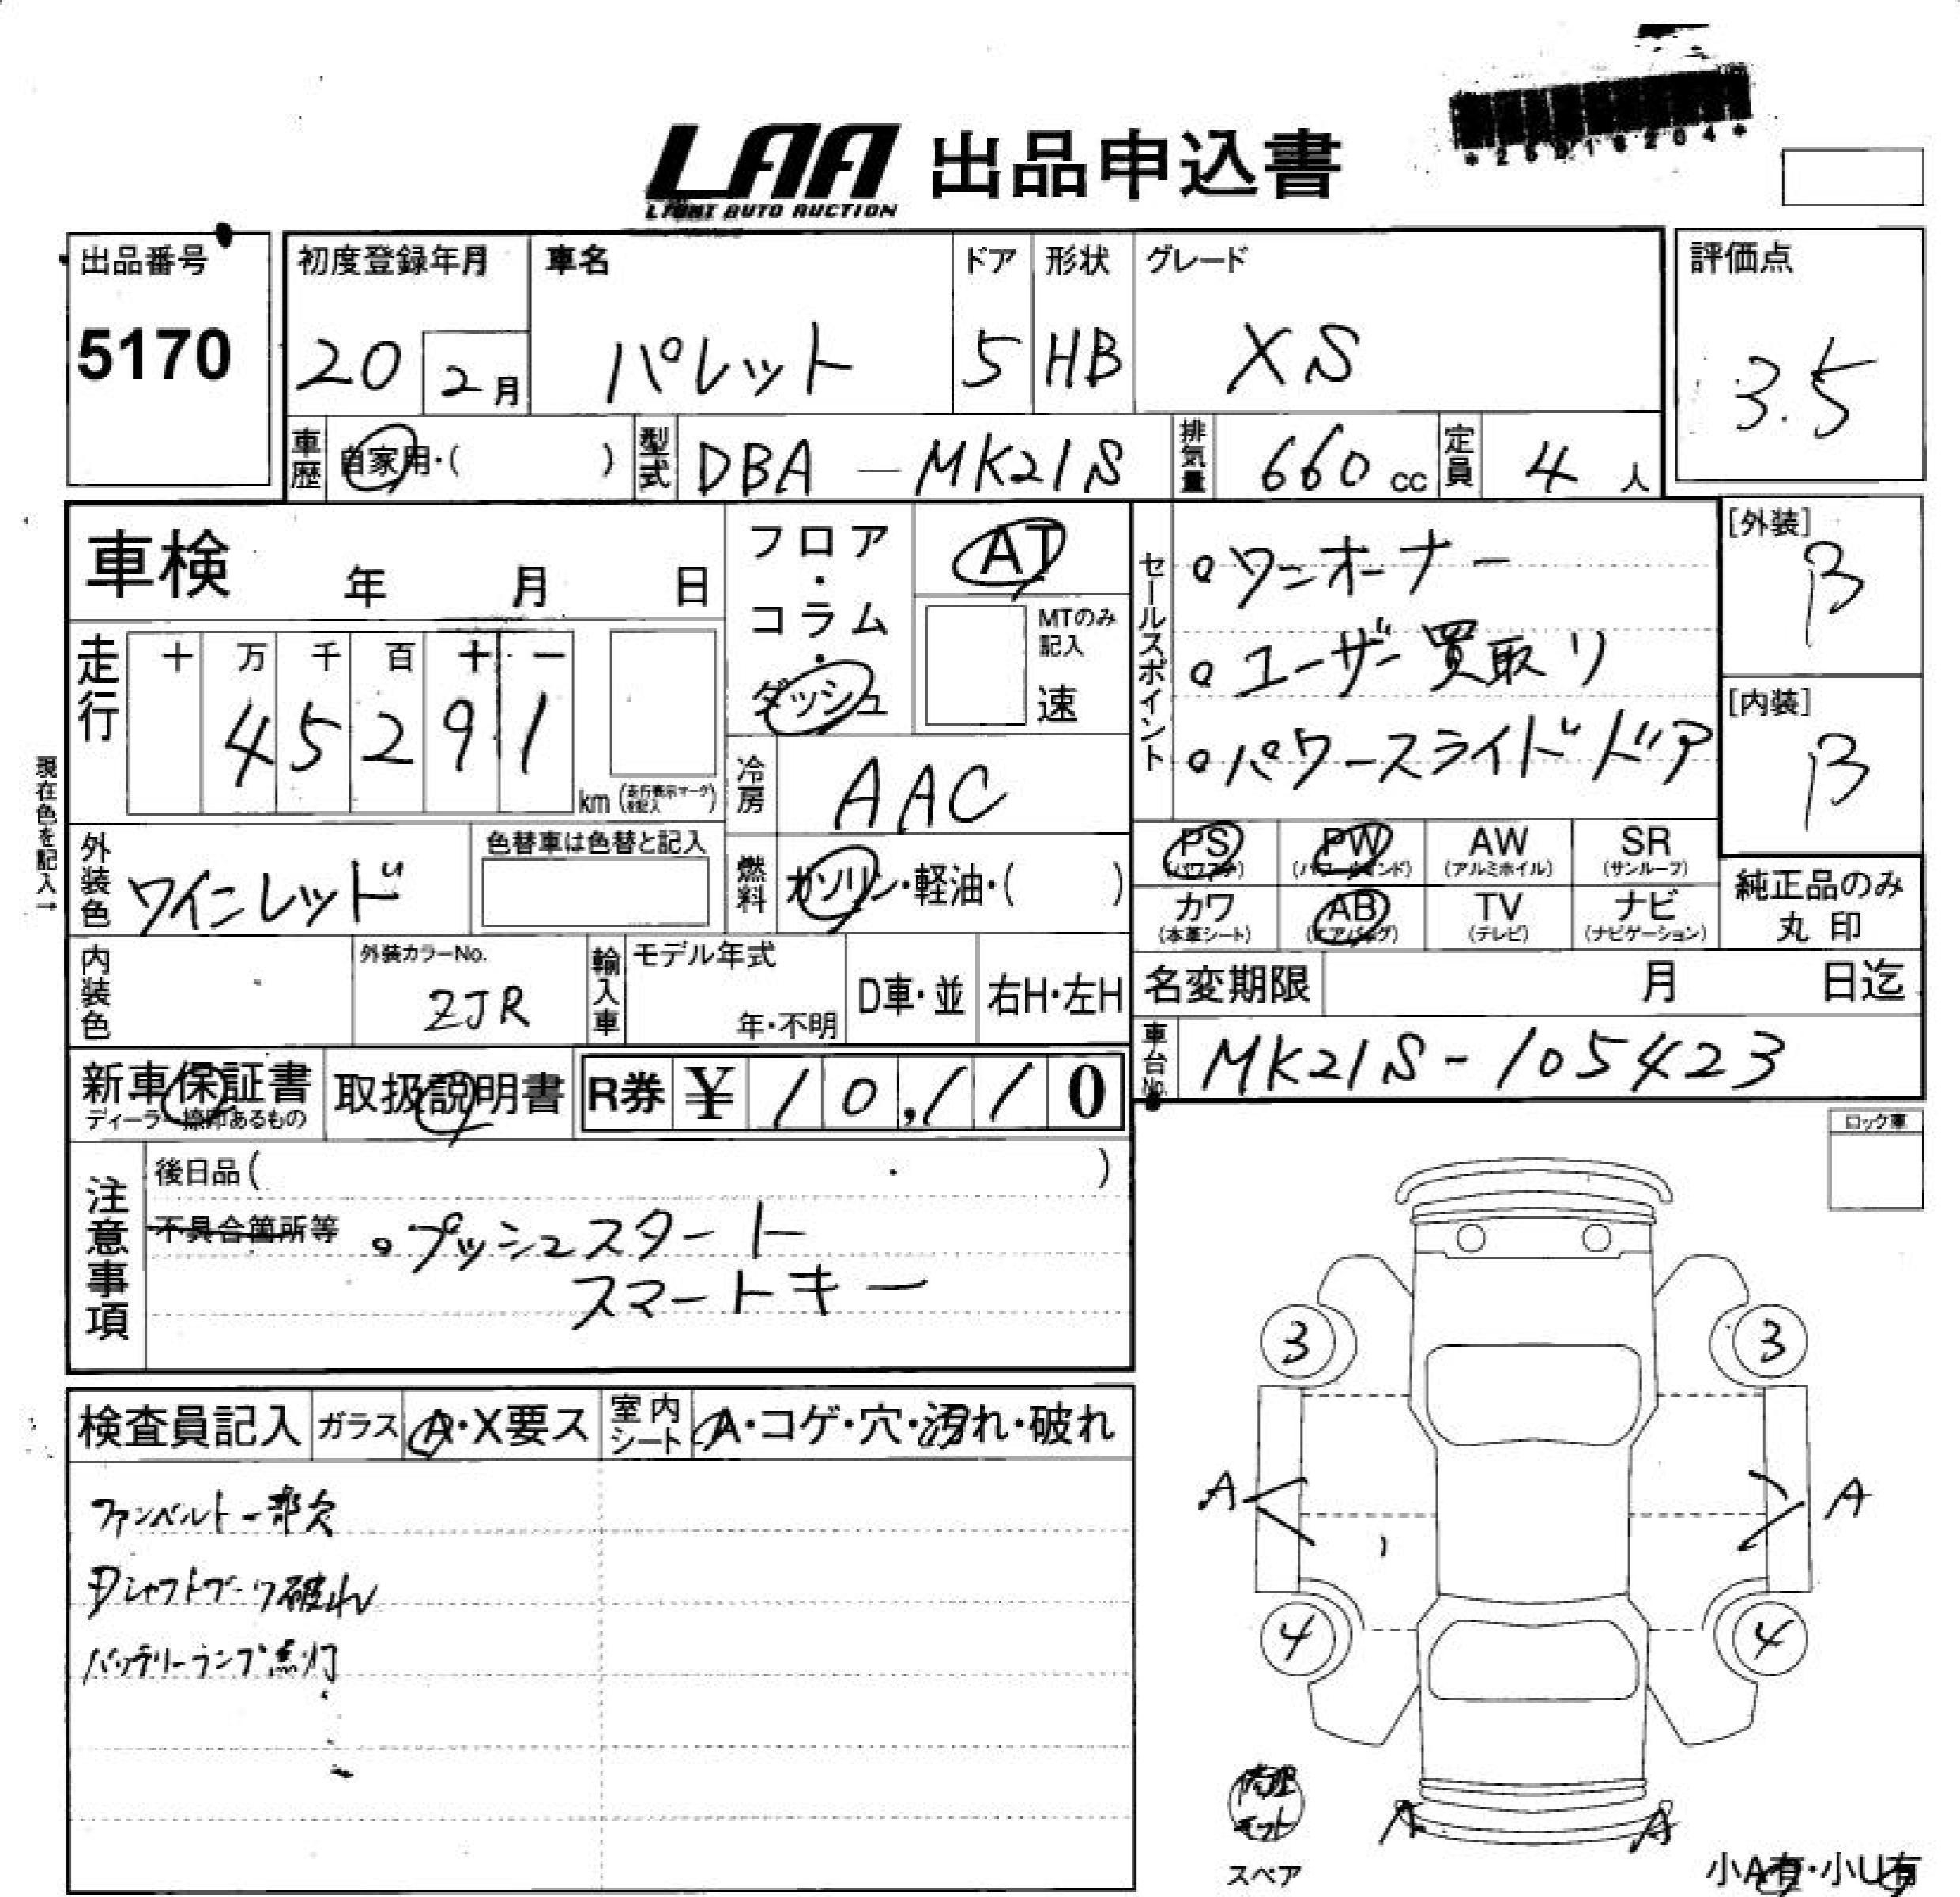 LAA 出品申込書
LIGHT AUTO AUCTION
出品番号
5170
初度登録年月
20 2月
車名
パレット
ドア
5
形状
HB
グレード
XS
評価点
3.5
車歴 自家用・( )
型式 DBA-MK21S
排気量 660cc
定員 4人
車検 年 月 日
フロア・コラム・ダッシュ
AT
MTのみ記入
速
セールスポイント
・ワンオーナー
・ユーザー買取り
・パワースライドドア
[外装]
B
[内装]
B
走行
十 万 千 百 十 一
4 5 2 9 1
km (走行表示マークを記入)
現在色を記入→
冷房 AAC
外装色 ワインレッド
色替車は色替と記入
燃料 ガソリン・軽油・( )
PS (パワステ)
PW (パワーウインド)
AW (アルミホイル)
SR (サンルーフ)
カワ (本革シート)
AB (エアバッグ)
TV (テレビ)
ナビ (ナビゲーション)
純正品のみ
丸印
内装色
外装カラーNo.
ZJR
輸入車
モデル年式
年・不明
D車・並
右H・左H
名変期限 月 日迄
車台No. MK21S-105423
新車保証書
取扱説明書
R券 ¥10,110
ロック車
注意事項
後日品( )
不具合箇所等
・プッシュスタート
スマートキー
検査員記入
ガラス A・X要ス
室内シート A・コゲ・穴・汚れ・破れ
ファンベルト一部欠
Dシャフトブーツ破れ
バッテリーランプ点灯
3 3
A A
4 4
修理キット
スペア
A A
小A有・小U有